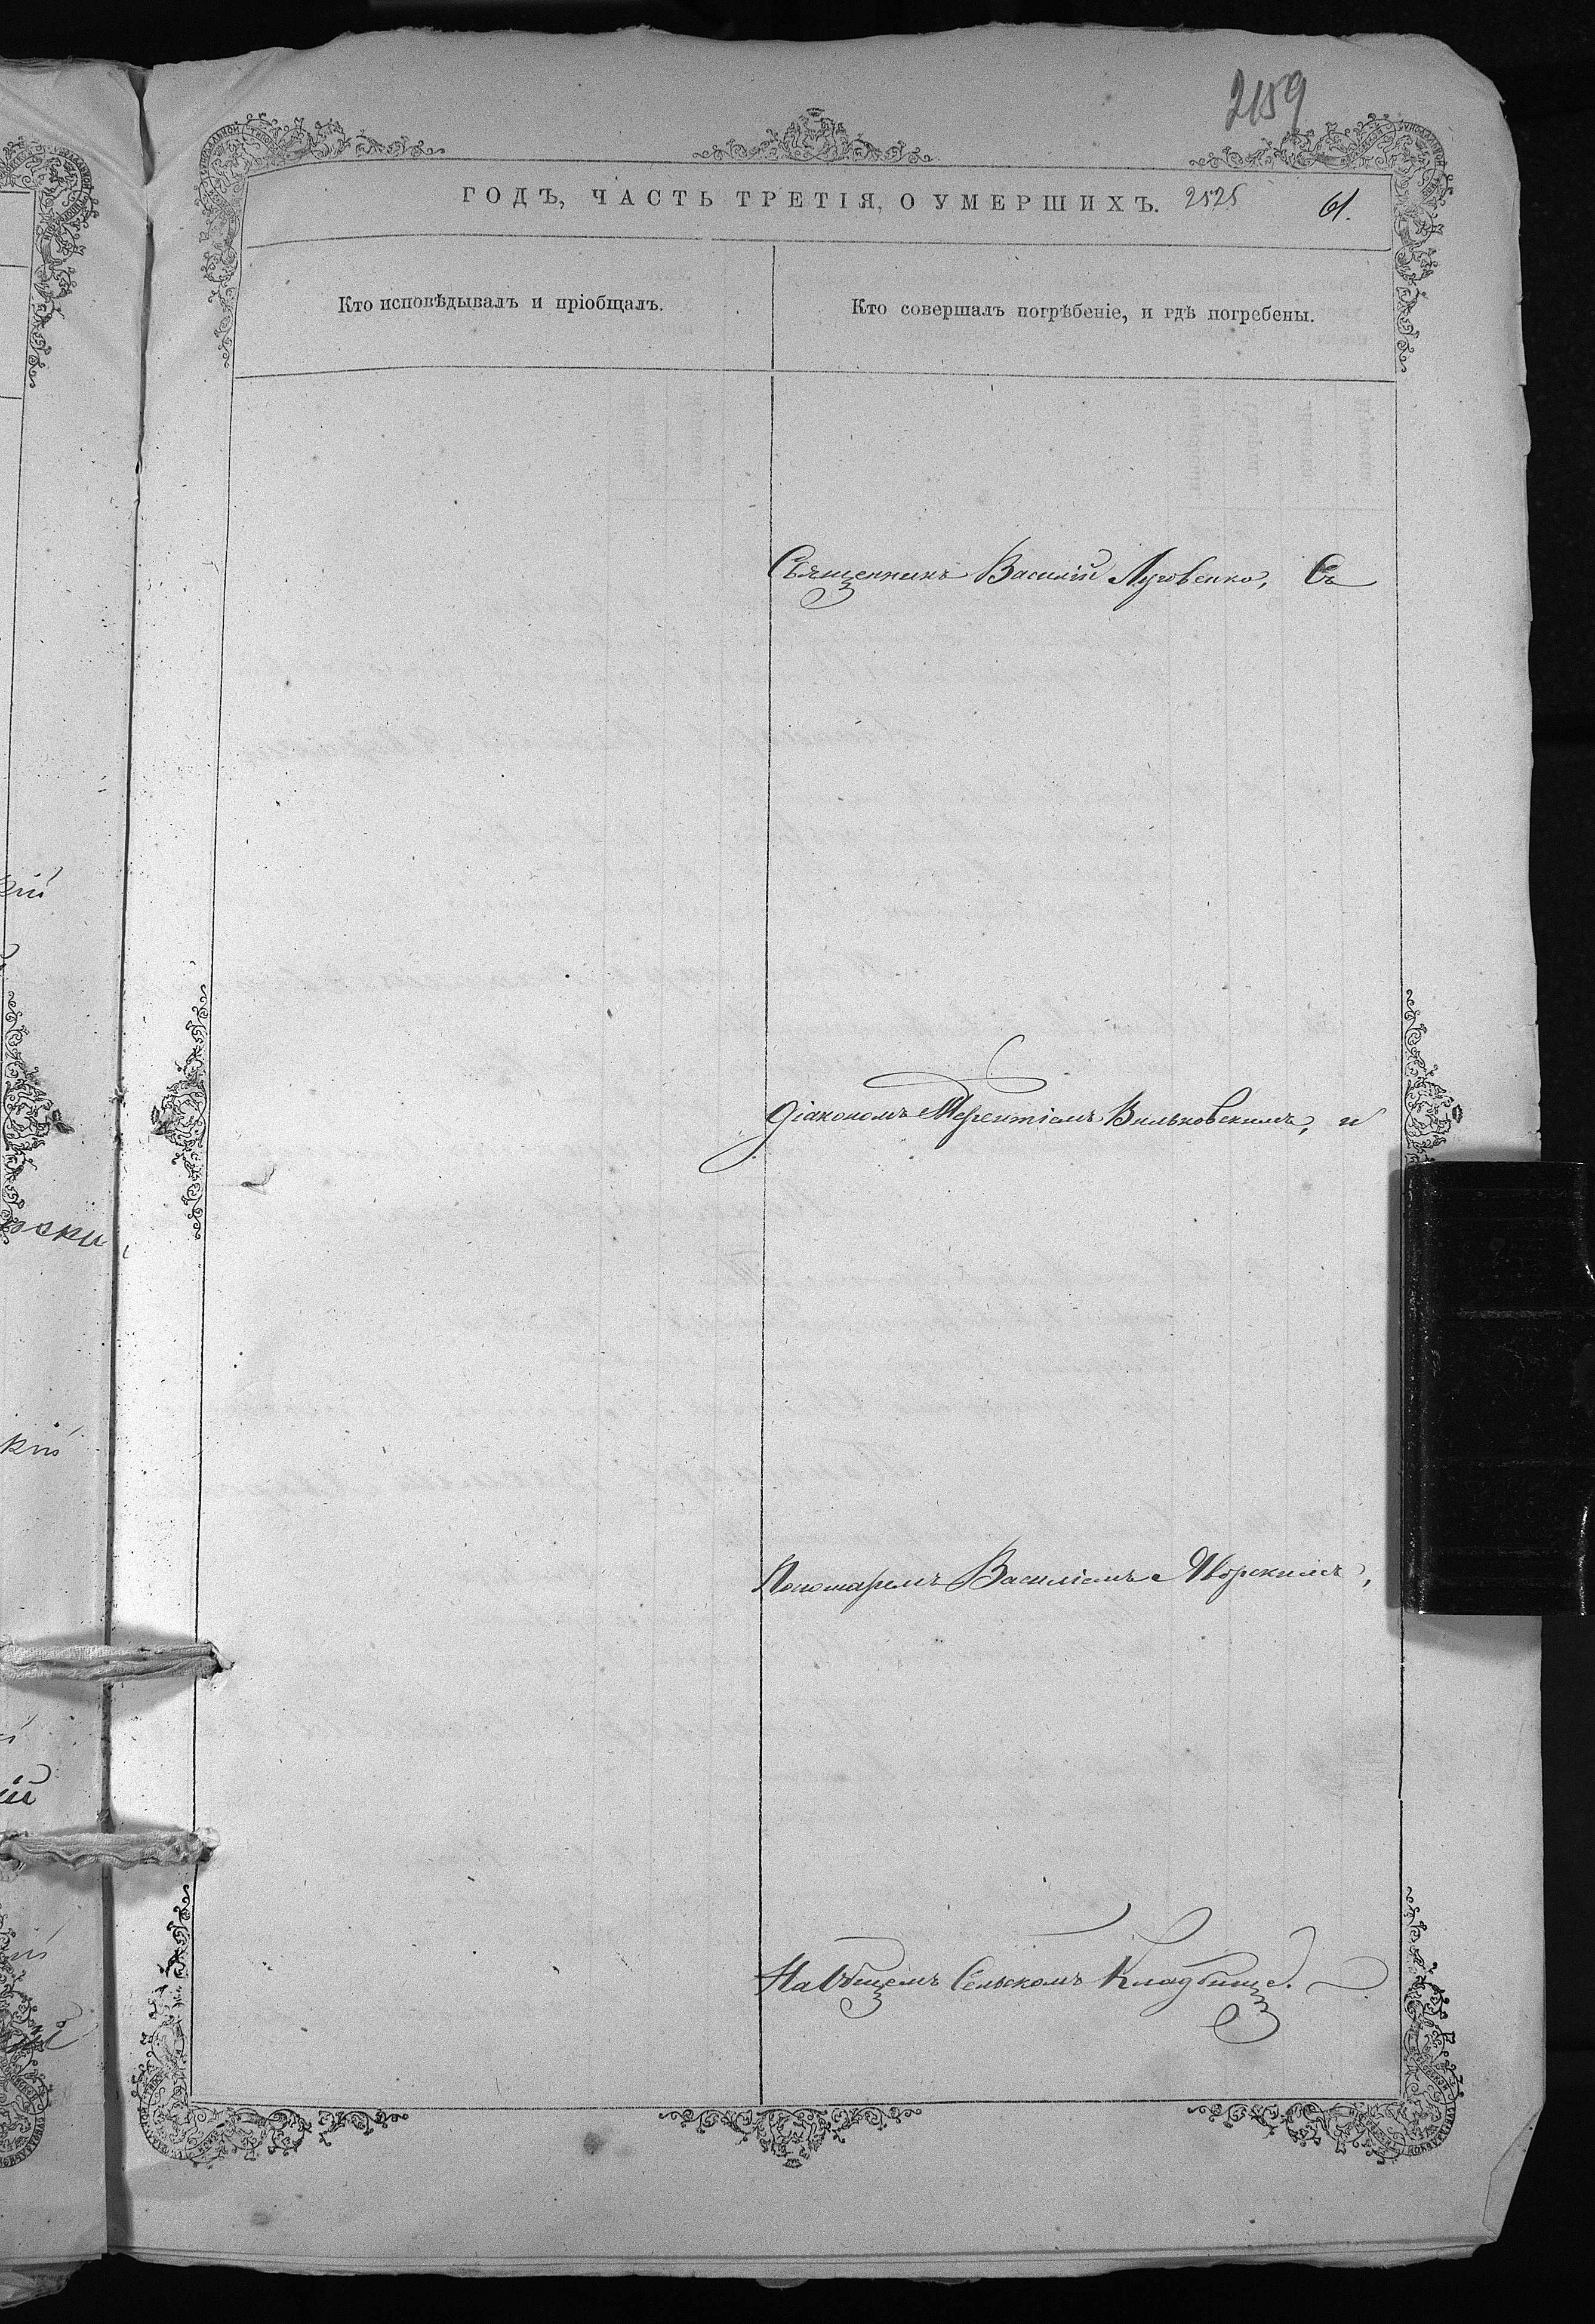 2159
ГОДЪ, ЧАСТЬ ТРЕТІЯ, О УМЕРШИХЪ. 2525 61.
Кто исповѣдывалъ и пріобщалъ.
Кто совершалъ погрѣбеніе, и гдѣ погребены.
Священникъ Василій Луговенко, Съ
Діакономъ Терентіемъ Вильховскимъ, и
Пономаремъ Василіемъ Яворскимъ,
На Общемъ Сельскомъ Кладбище.